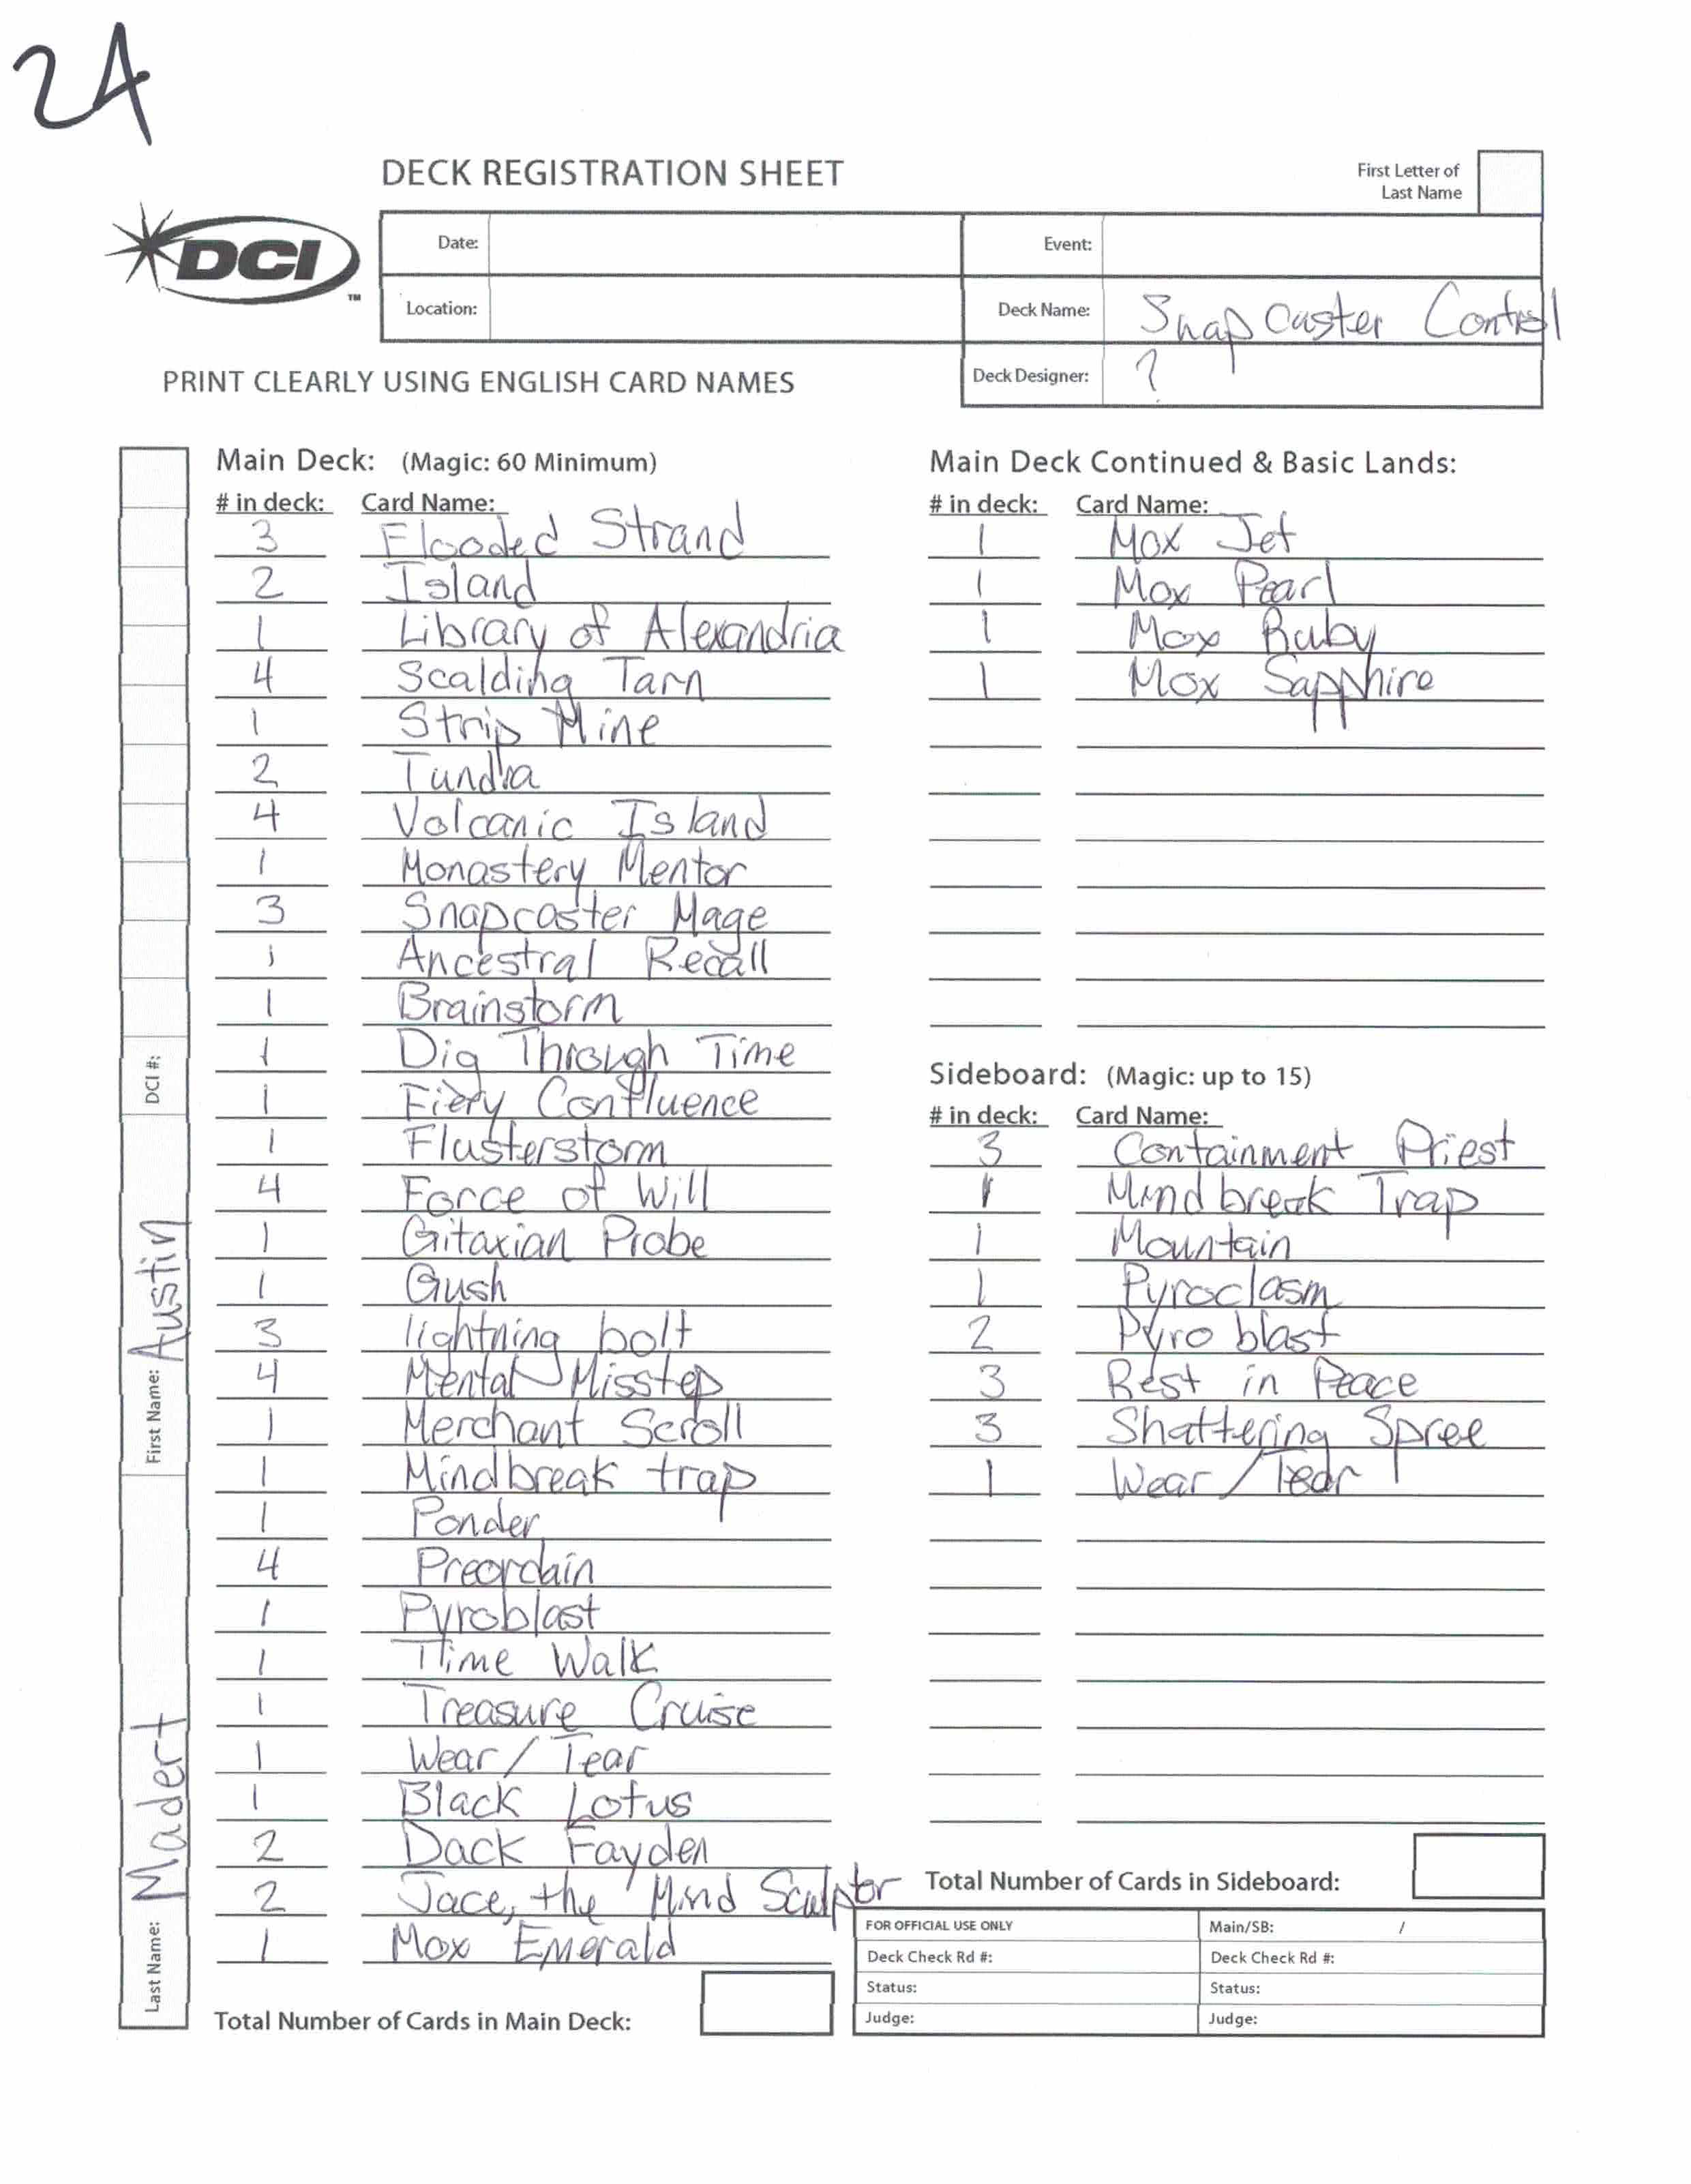 24
DECK REGISTRATION SHEET
First Letter of
Last Name
DCI
TM
Date:
Event:
Location:
Deck Name: Snapcaster Control
PRINT CLEARLY USING ENGLISH CARD NAMES
Deck Designer: ?
Main Deck: (Magic: 60 Minimum)
# in deck: Card Name:
3 Flooded Strand
2 Island
1 Library of Alexandria
4 Scalding Tarn
1 Strip Mine
2 Tundra
4 Volcanic Island
1 Monastery Mentor
3 Snapcaster Mage
1 Ancestral Recall
1 Brainstorm
1 Dig Through Time
1 Fiery Confluence
1 Flusterstorm
4 Force of Will
1 Gitaxian Probe
1 Gush
3 lightning bolt
4 Mental Misstep
1 Merchant Scroll
1 Mindbreak trap
1 Ponder
4 Preordain
1 Pyroblast
1 Time Walk
1 Treasure Cruise
1 Wear / Tear
1 Black Lotus
2 Dack Fayden
2 Jace, the Mind Sculptor
1 Mox Emerald
Total Number of Cards in Main Deck:
Main Deck Continued & Basic Lands:
# in deck: Card Name:
1 Mox Jet
1 Mox Pearl
1 Mox Ruby
1 Mox Sapphire
Sideboard: (Magic: up to 15)
# in deck: Card Name:
3 Containment Priest
1 Mindbreak Trap
1 Mountain
1 Pyroclasm
2 Pyro blast
3 Rest in Peace
3 Shattering Spree
1 Wear / Tear
Total Number of Cards in Sideboard:
FOR OFFICIAL USE ONLY
Main/SB: /
Deck Check Rd #:
Deck Check Rd #:
Status:
Status:
Judge:
Judge:
Last Name: Madert
First Name: Austin
DCI #: